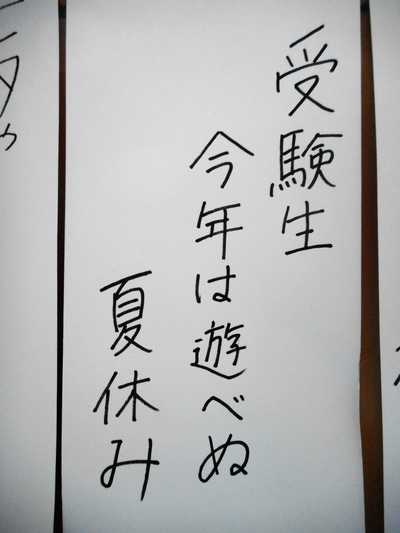 受験生
今年は遊べぬ
夏休み